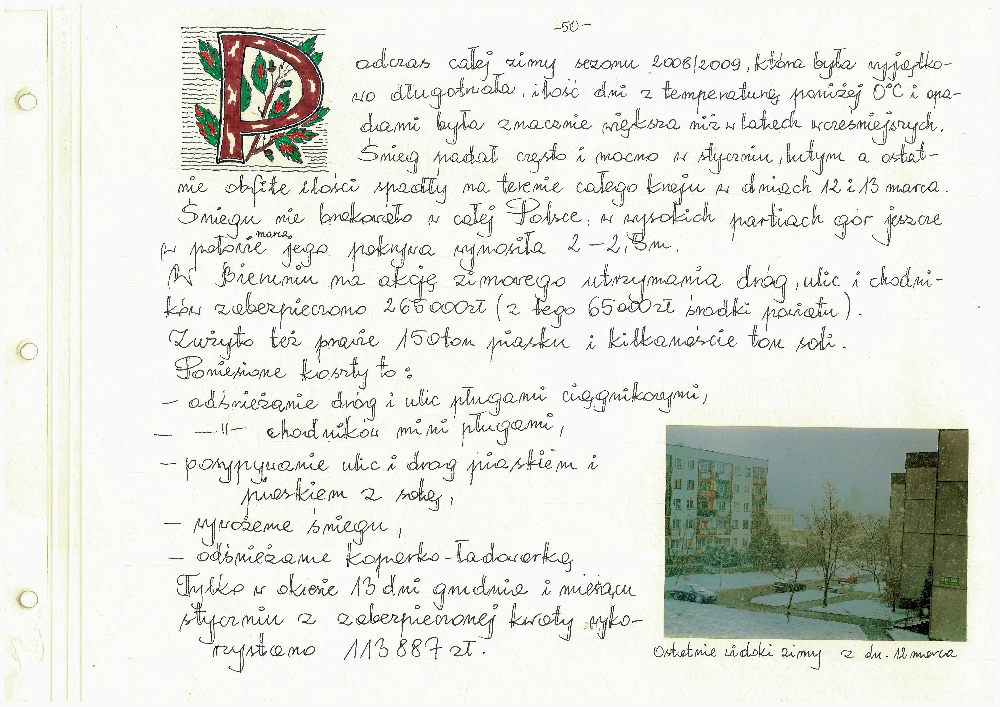 -50-
Podczas całej zimy sezonu 2008/2009, która była wyjątko-
wo długotrwała, ilość dni z temperaturą poniżej 0°C i opa-
dami była znacznie większa niż w latach wcześniejszych.
Śnieg padał często i mocno w styczniu, lutym a ostat-
nie obfite ilości spadły na terenie całego kraju w dniach 12 i 13 marca.
Śniegu nie brakowało w całej Polsce, w wysokich partiach gór jeszcze
w połowie marca jego pokrywa wynosiła 2-2,5m.
W Bieruniu na akcję zimowego utrzymania dróg, ulic i chodni-
ków zabezpieczono 265000zł (z tego 65000zł środki powiatu).
Zużyto też prawie 150 ton piasku i kilkanaście ton soli.
Poniesione koszty to:
- odśnieżanie dróg i ulic pługami ciągnikowymi,
- -"- chodników mini pługami,
- posypywanie ulic i dróg piaskiem i
piaskiem z solą,
- wywożenie śniegu,
- odśnieżanie koparko-ładowarką
Tylko w okresie 13 dni grudnia i miesiącu
styczniu z zabezpieczonej kwoty wyko-
rzystano 113887 zł.
Ostatnie widoki zimy z dn. 12 marca